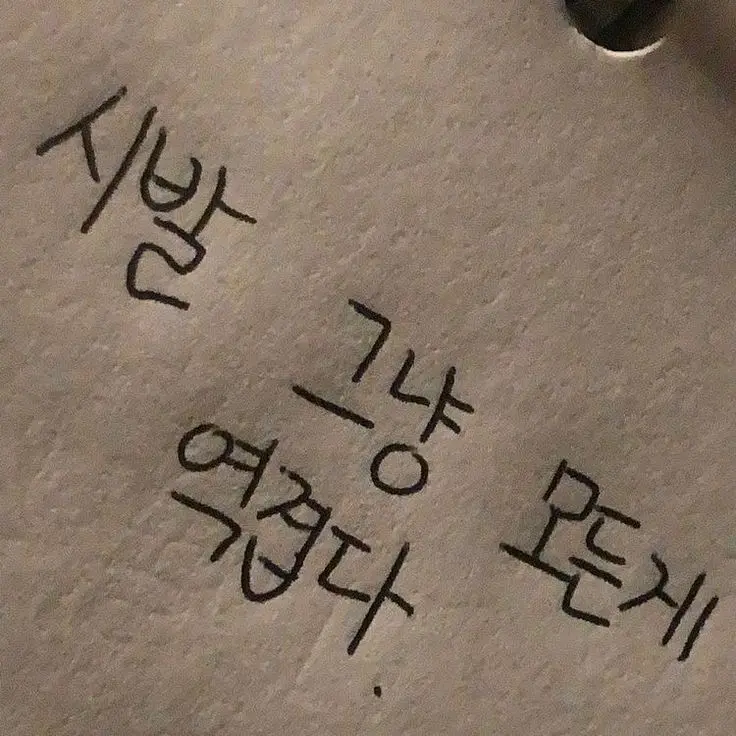 시발
그냥 모든게
역겹다.